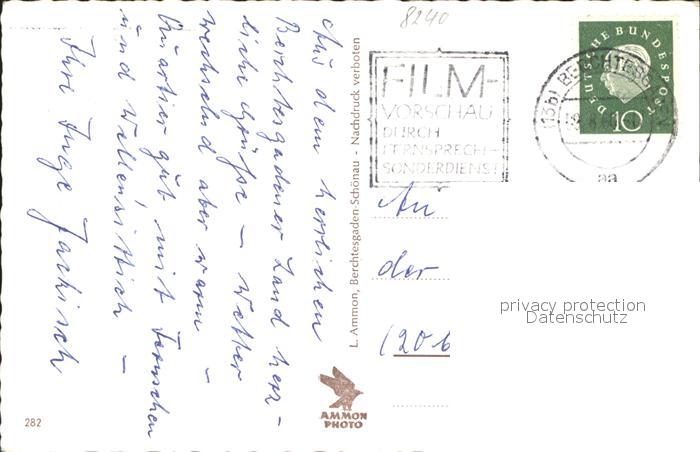 Aus dem herrlichen
Berchtesgadener Land herz-
liche Grüße – Wetter
wechselnd aber warm –
Quartier gut mit Fernsehen
und Wellensittich –
Ihre Inge Jachisch
8240
FILM-
VORSCHAU
DURCH
FERNSPRECH-
SONDERDIENST
(13b) BERCHTESGADEN
aa
DEUTSCHE BUNDESPOST
10
L. Ammon, Berchtesgaden-Schönau - Nachdruck verboten
An
der
(20b
privacy protection
Datenschutz
AMMON
PHOTO
282